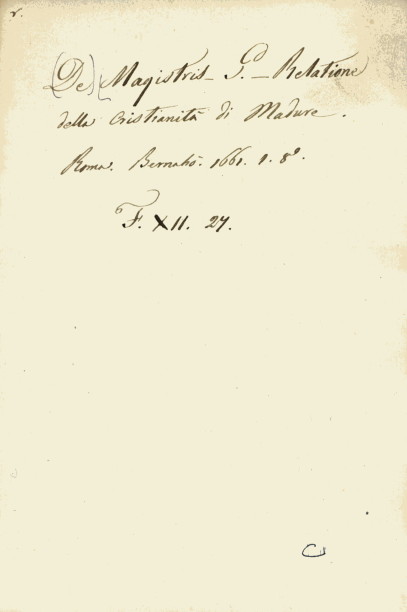 r.
(De) Magistris - G. - Relatione
della Cristianità di Madure.
Roma. Bernabò. 1661. 1. 8º.
F. XII. 27.